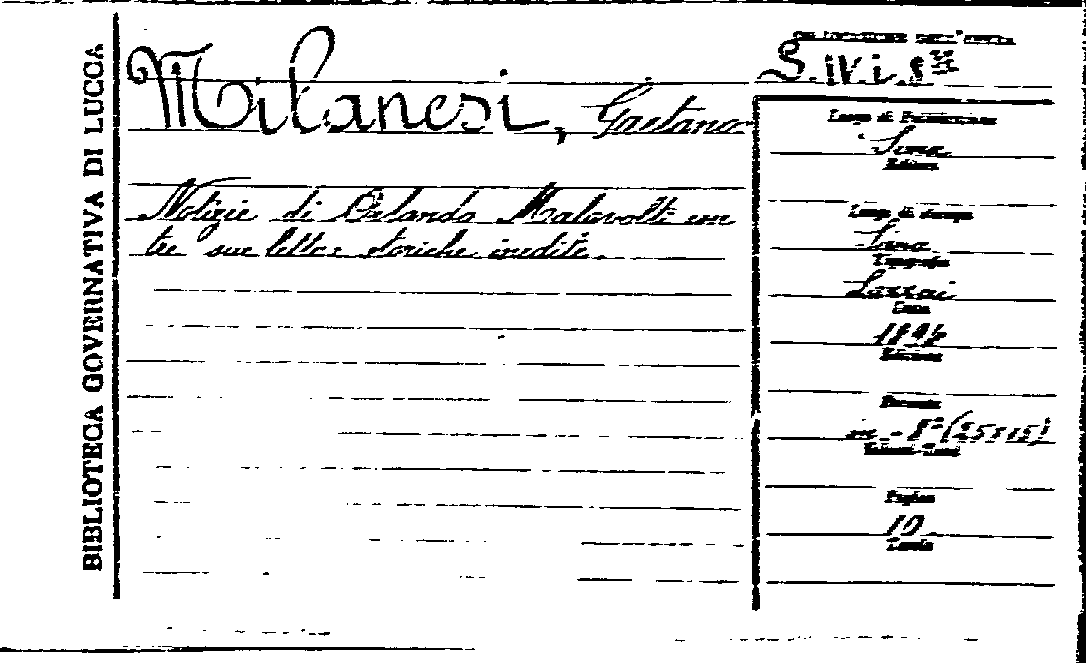 BIBLIOTECA GOVERNATIVA DI LUCCA
Milanesi, Gaetano
Notizie di Orlando Malavolti con
tre sue lettere storiche inedite.
Luogo di Pubblicazione
Siena
Editore
Luogo di stampa
Siena
Tipografia
Lazzeri
Anno
Edizione
Formato
in - 8° (25x15)
Pagine
10
Tavole